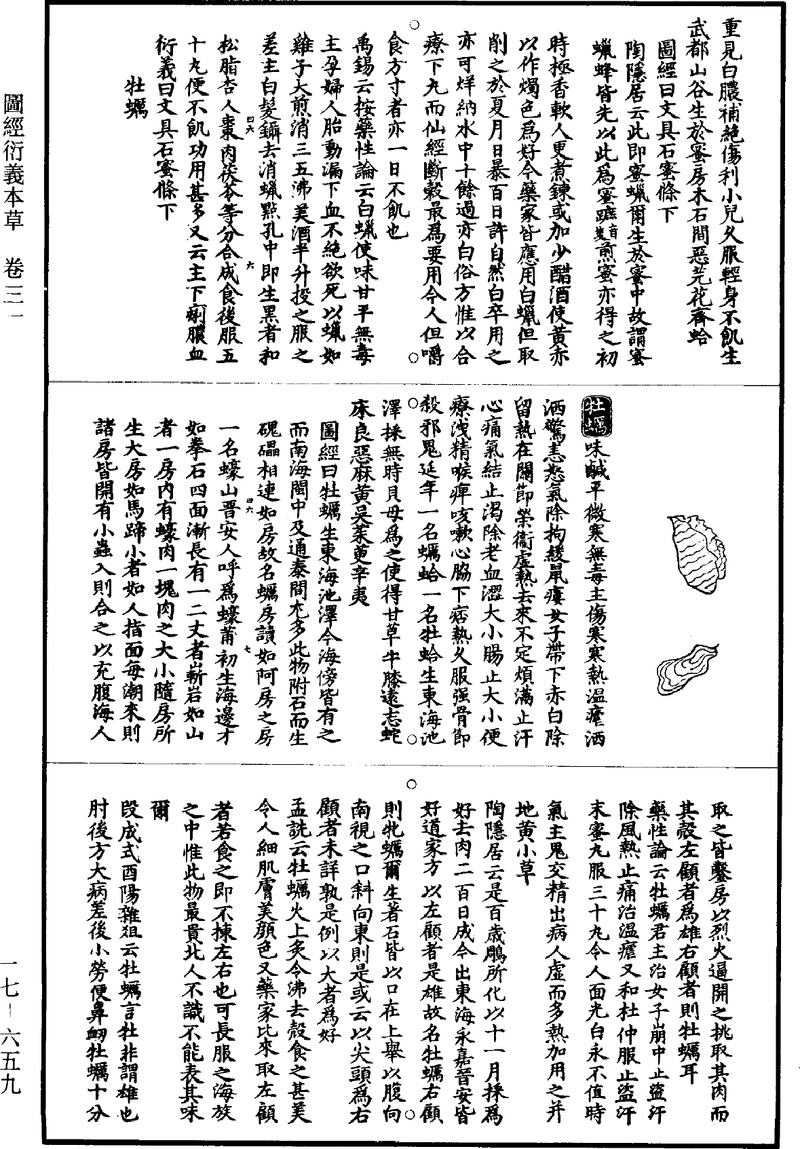 重見白膿補絕傷利小兒久服輕身不飢生
武都山谷生於蜜房木石間惡芫花齊蛤
圖經曰文具石蜜條下
陶隱居云此即蜜蠟爾生於蜜中故謂蜜
蠟蜂皆先以此為蜜蹠音隻煎蜜亦得之初
時極香軟人更煮鍊或加少醋酒使黃赤
以作燭色為好今藥家皆應用白蠟但取
削之於夏月日暴百日許自然白卒用之
亦可烊納水中十餘過亦白俗方惟以合
療下丸而仙經斷穀最為要用今人但嚼
食方寸者亦一日不飢也
禹錫云按藥性論云白蠟使味甘平無毒
主孕婦人胎動漏下血不絕欲死以蠟如
雞子大煎消三五沸美酒半升投之服之
差主白髮鑷去消蠟點孔中即生黑者和
松脂杏人棗肉茯苓等分合成食後服五
十丸便不飢功用甚多又云主下痢膿血
衍義曰文具石蜜條下
牡蠣
牡蠣味鹹平微寒無毒主傷寒寒熱溫瘧洒
洒驚恚怒氣除拘緩鼠瘻女子帶下赤白除
留熱在關節榮衛虛熱去來不定煩滿止汗
心痛氣結止渴除老血澀大小腸止大小便
療洩精喉痺咳嗽心脇下痞熱久服强骨節
殺邪鬼延年一名蠣蛤一名牡蛤生東海池
澤採無時貝母為之使得甘草牛膝遠志蛇
床良惡麻黃吳茱萸辛夷
圖經曰牡蠣生東海池澤今海傍皆有之
而南海閩中及通泰間尤多此物附石而生
磈礧相連如房故名蠣房讀如阿房之房
一名蠔山晋安人呼為蠔莆初生海邊才
如拳石四面漸長有一二丈者嶄岩如山
者一房內有蠔肉一塊肉之大小隨房所
生大房如馬蹄小者如人指面每潮來則
諸房皆開有小蟲入則合之以充腹海人
取之皆鑿房以烈火逼開之挑取其肉而
其殼左顧者為雄右顧者則牡蠣耳
藥性論云牡蠣君主治女子崩中止盜汗
除風熱止痛治溫瘧又和杜仲服止盜汗
末蜜丸服三十丸令人面光白永不值時
氣主鬼交精出病人虛而多熱加用之并
地黃小草
陶隱居云是百歲鵰所化以十一月採為
好去肉二百日成今出東海永嘉晉安皆
好道家方以左顧者是雄故名牡蠣右顧
則牝蠣爾生著石皆以口在上舉以腹向
南視之口斜向東則是或云以尖頭為右
顧者未詳孰是例以大者為好
孟詵云牡蠣火上炙令沸去殼食之甚美
令人細肌膚美顏色又藥家比來取左顧
者若食之即不揀左右也可長服之海族
之中惟此物最貴北人不識不能表其味
爾
段成式酉陽雜俎云牡蠣言牡非謂雄也
肘後方大病差後小勞便鼻衂牡蠣十分
圖經衍義本草 卷三一
一七－六五九